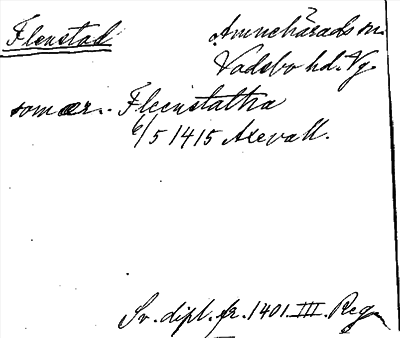 Flenstad Amnehärads sn.
Vadsbo hd. Vg.
som är. Fleenstadha
6/5 1415 Axevall.
Sv. dipl. fr. 1401 III. Reg